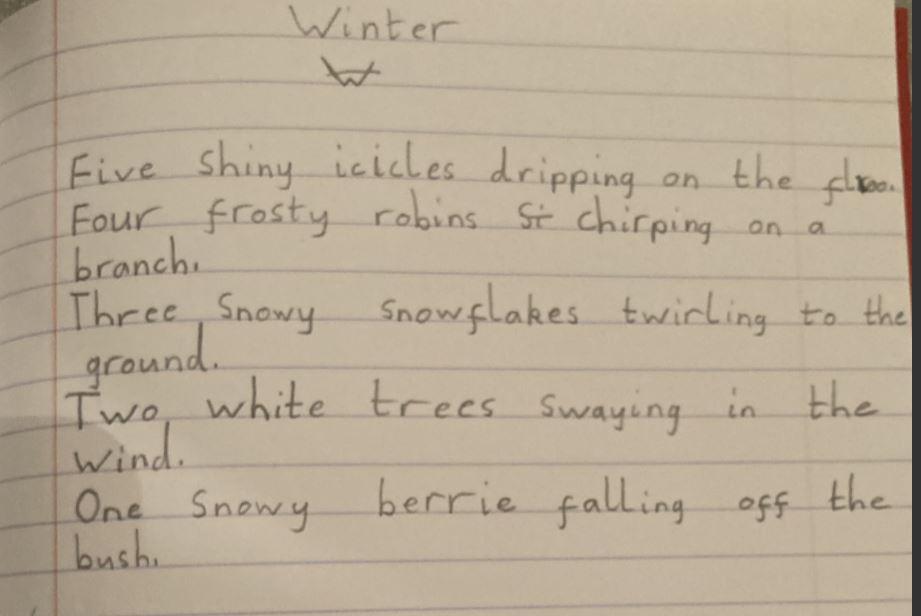 Winter
W
Five shiny icicles dripping on the floo.
Four frosty robins St chirping on a
branch.
Three Snowy snowflakes twirling to the
ground.
Two white trees swaying in the
wind.
One Snowy berrie falling off the
bush.